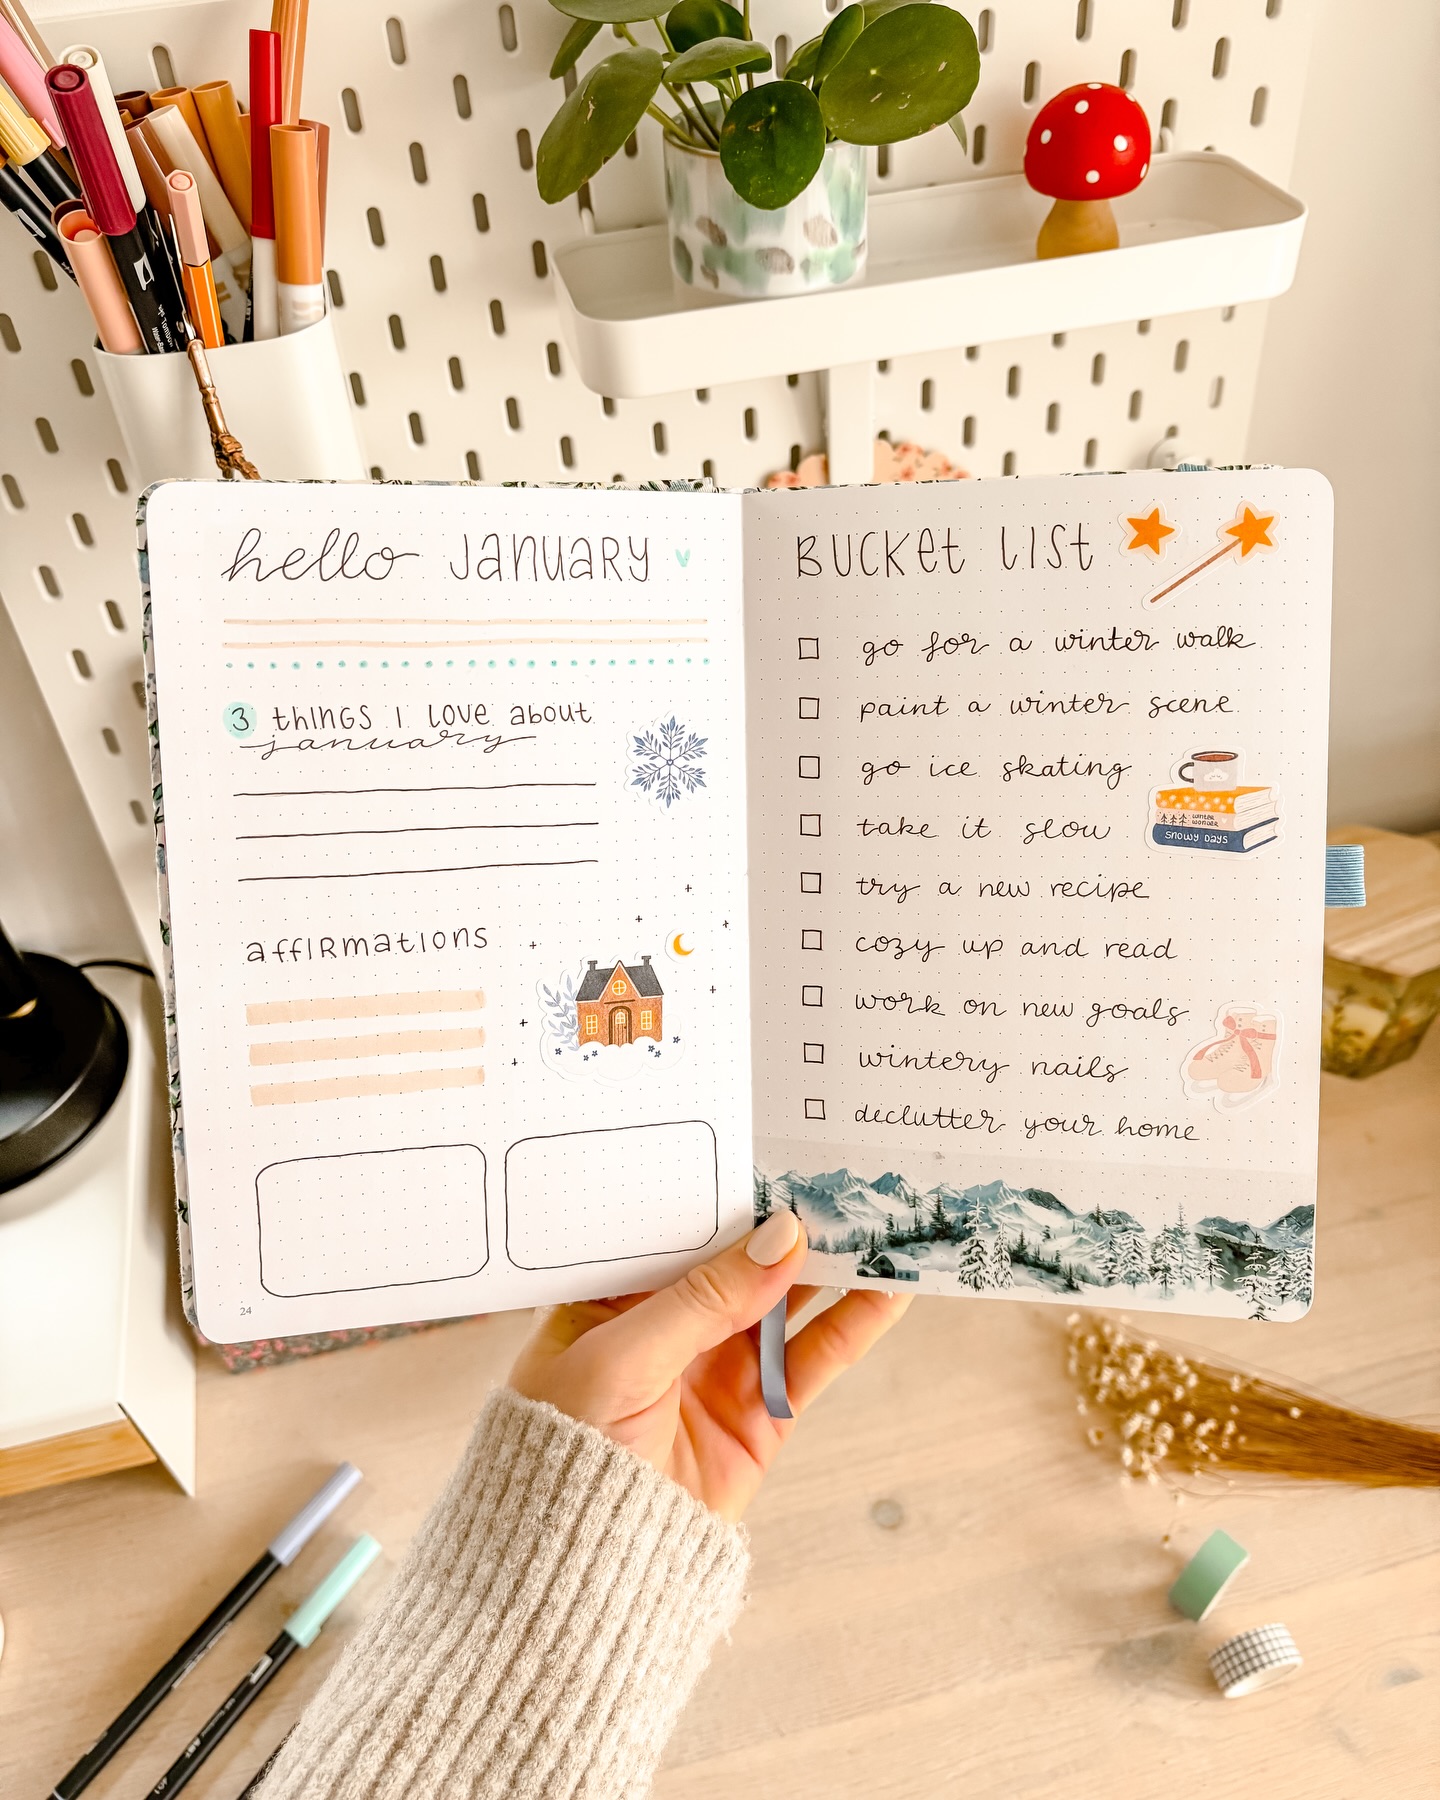 hello January
3 things I love about
january
affirmations
24
Bucket list
go for a winter walk
paint a winter scene
go ice skating
take it slow
try a new recipe
cozy up and read
work on new goals
wintery nails
declutter your home
winter
wonder
snowy days
Tombow